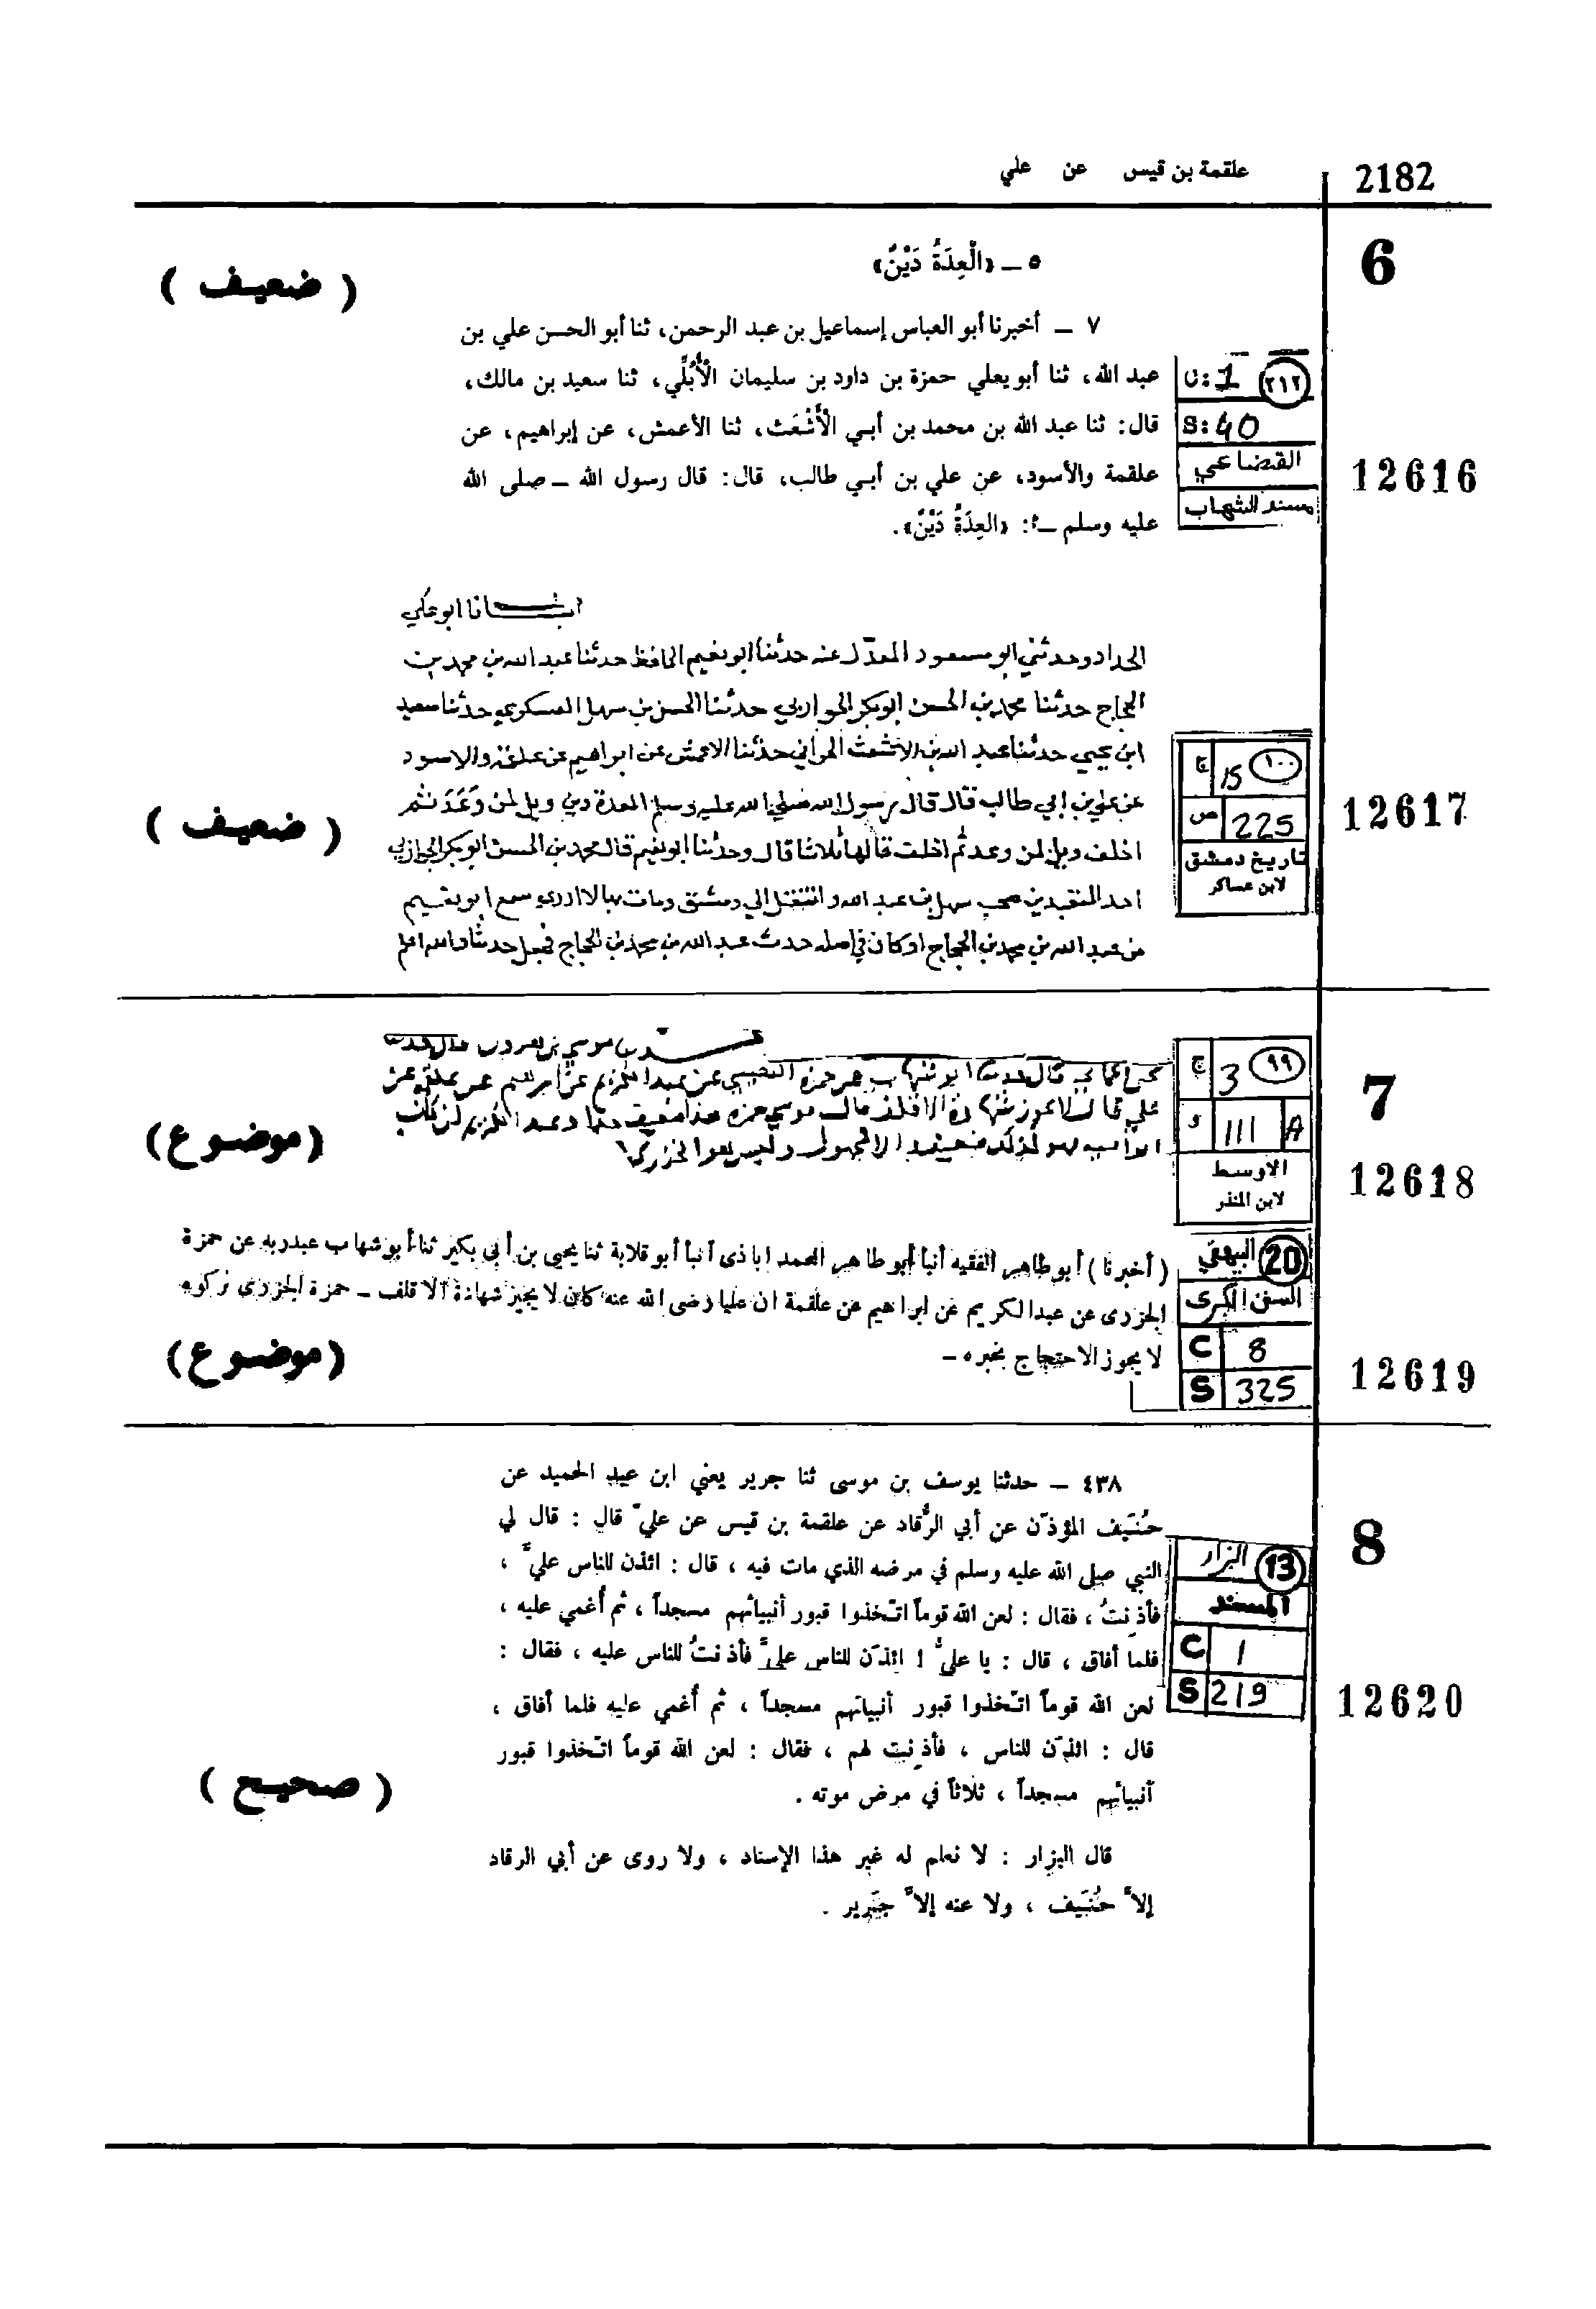 2182
علقمة بن قيس عن علي
6
٥ ــ «الْعِدَةُ دَيْنٌ»
( ضعيف )
٧ ــ أخبرنا أبو العباس إسماعيل بن عبد الرحمن، ثنا أبو الحسن علي بن
عبد الله، ثنا أبو يعلي حمزة بن داود بن سليمان الْأُبُلِّي، ثنا سعيد بن مالك،
قال: ثنا عبد الله بن محمد بن أبي الْأَشْعَث، ثنا الأعمش، عن إبراهيم، عن
علقمة والأسود، عن علي بن أبي طالب، قال: قال رسول الله ــ صلى الله
عليه وسلم ــ: «العِدَةُ دَيْنٌ».
٢١٢ C: 1
S: 40
القضاعي
مسند الشهاب
12616
انبانا ابو علي
الحداد وحدثني ابو مسعود المعدّل عنه حدثنا ابو نعيم الحافظ حدثنا عبد الله بن محمد بن
الحجاج حدثنا محمد بن الحسن ابو بكر الجواربي حدثنا الحسن بن سهل العسكري حدثنا سعيد
ابن يحيي حدثنا عبد الله بن الاشعث الحراني حدثنا الاعمش عن ابراهيم عن علقمة والاسود
عن علي بن ابي طالب قال قال رسول الله صلي الله عليه وسلم العدة دين ويل لمن وَعَدَ ثم
اخلف ويل لمن وعد ثم اخلف قالها ثلاثا قال وحدثنا ابو نعيم قال محمد بن الحسن ابو بكر الجواربي
احد المتعبدين صحب سهل بن عبد الله وانتقل الي دمشق ومات بها لا ادري سمع ابو نعيم
من عبد الله بن محمد بن الحجاج او كان في اصله حدث عبد الله بن محمد بن الحجاج فجعل حدثنا والله اعلم
١٠٠ 15 ج
225 ص
تاريخ دمشق
لابن عساكر
12617
( ضعيف )
موسي بن هرون
قال حدثنا ابو شهاب عن حمزة النصيبي عن عبد الكريم عن ابراهيم عن علقمة عن
علي قال لا تجوز شهادة الاقلف قال موسي حمزة هذا ضعيف جدا وعبد الكريم ان كان
٩٩ 3 ج
A 111 و
الاوسط
لابن المنذر
7
12618
(موضوع)
( أخبرنا ) أبو طاهر الفقيه أنبأ أبو طاهر المحمد اباذى أنبأ أبو قلابة ثنا يحيى بن أبي بكير ثنا أبو شهاب عبدربه عن حمزة
الجزرى عن عبد الكريم عن ابراهيم عن علقمة ان عليا رضى الله عنه كان لا يجيز شهادة الاقلف ــ حمزة الجزرى تركوه
لا يجوز الاحتجاج بخبره ــ
20 البيهقي
السنن الكبرى
C 8
S 325
12619
(موضوع)
٤٣٨ ــ حدثنا يوسف بن موسى ثنا جرير يعني ابن عبد الحميد عن
حُنَيف المؤذّن عن أبي الرُّقاد عن علقمة بن قيس عن عليّ قال : قال لي
النبي صلى الله عليه وسلم في مرضه الذي مات فيه ، قال : ائذن للناس عليَّ ،
فأذِنتُ ، فقال : لعن الله قوماً اتّخذوا قبور أنبيائهم مسجداً ، ثم أُغمي عليه ،
فلما أفاق ، قال : يا عليُّ ! ائذَن للناس عليَّ فأذنتُ للناس عليه ، فقال :
لعن الله قوماً اتّخذوا قبور أنبيائهم مسجداً ، ثم أُغمي عليه فلما أفاق ،
قال : ائذَن للناس ، فأذِنت لهم ، فقال : لعن الله قوماً اتّخذوا قبور
أنبيائهم مسجداً ، ثلاثاً في مرض موته .
قال البزار : لا نعلم له غير هذا الإسناد ، ولا روى عن أبي الرقاد
إلاَّ حُنَيف ، ولا عنه إلاَّ جَرير .
13 البزار
المسند
C 1
S 219
8
12620
( صحيح )